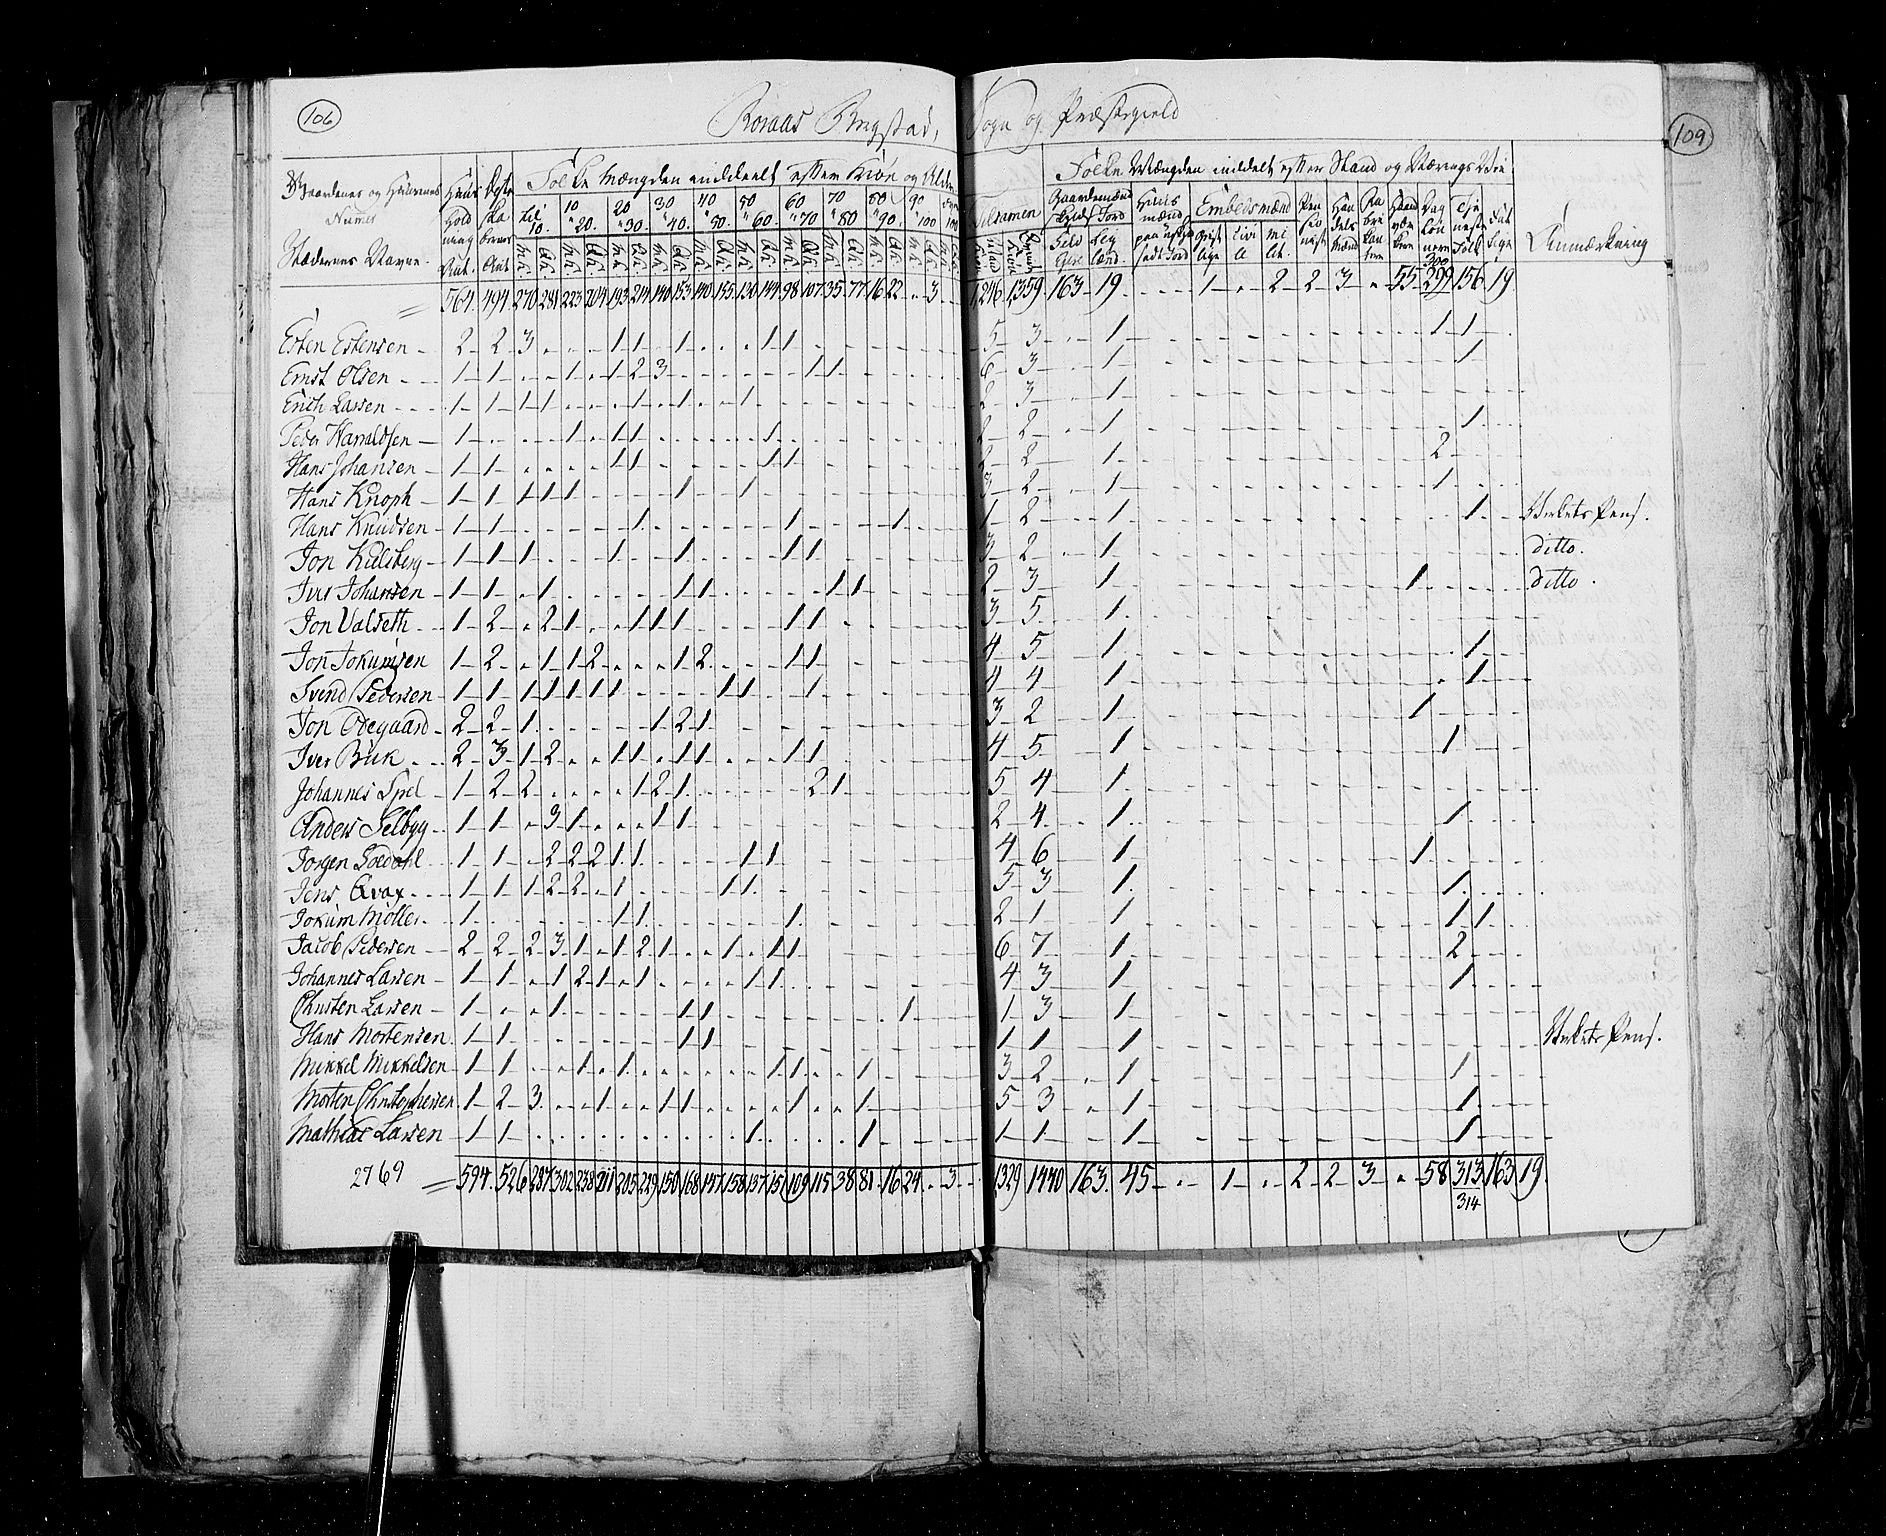 106
Roraas Bergstad, Sogn og Præstegield
109
Gaardenes og Husenes Navne
Stædernes Navne.
Folke Mængden inddeelt efter Kiøn og Alder
til 10. 10 " 20. 20 " 30. 30 " 40. 40 " 50. 50 " 60. 60 " 70 70 " 80 80 " 90. 90 " 100 100
Tilsamen
Folke Mængden inddelt efter Stand og Nærings Vei
Embedsmænd
Anmærkning
564. 494. 270. 281 223 204 193 214 140 153 140 155 130 144 98 107 35 77 16 22 " 3 1246 1359 163 19 1 " 2 2 3 " 55 300 299 156 19
Esten Estensen 2 2 3 1 1 1 1 1 5 3 1 1 1
Ernst Olsen 1 1 1 1 2 3 1 1 6 3 1 1
Erich Larsen 1 1 1 1 1 1 1 2 3 1
Peder Haraldsen 1 1 1 1 1 2 2 1 1
Hans Johansen 1 1 1 1 1 1 2 2 1 2
Hans Knoph 1 1 1 1 1 1 1 3 2 1 1
Hans Knudsen 1 1 1 1 1 1 2 1 1 Verkets Pens.
Jon Kielsberg 1 1 1 1 1 1 1 3 2 1 ditto.
Iver Johansen 1 1 1 1 1 1 1 2 3 1 1 ditto.
Jon Valseth 1 2 2 1 1 1 1 1 1 3 5 1
Jon Jokumsen 1 2 1 1 2 1 2 1 1 4 5 1 1
Svend Pedersen 1 1 1 1 1 1 1 1 1 1 4 4 1 1
Jon Ødegaard 2 2 1 1 2 1 3 2 1 1
Iver Buk 2 3 1 2 1 1 1 1 1 1 4 5 1 1
Johannes Spel 1 2 2 1 2 1 2 1 5 4 1
Anders Selbyg 1 1 3 1 1 1 2 4 1 1
Jorgen Soedahl 1 1 2 2 2 1 1 1 1 4 6 1 1
Jens Qvax 1 1 1 2 2 1 1 1 5 3 1 1
Jokum Møller 1 1 1 1 2 1 1 1 1
Jacob Pedersen 2 2 2 3 1 1 2 1 1 1 1 6 7 1 2
Johannes Larsen 1 1 1 2 1 1 1 1 4 3 1 1
Christen Larsen 1 1 1 1 1 1 3 1
Hans Mortensen 1 1 1 1 1 1 1 Verkets Pens.
Mikkel Mikkelsen 1 1 1 1 1 1 1 3 2 1 1
Morten Christophersen 1 2 3 1 1 1 1 1 5 3 1 1
Mathias Larsen 1 1 1 1 1 1 1 1
2769 594. 526 287 302 238 211 205 229 150 168 147 158 137 151 109 115 38 81 16 24 " 3 1329 1440 163. 45 " 1 " 2 2 3 " 58 313 163 19
314